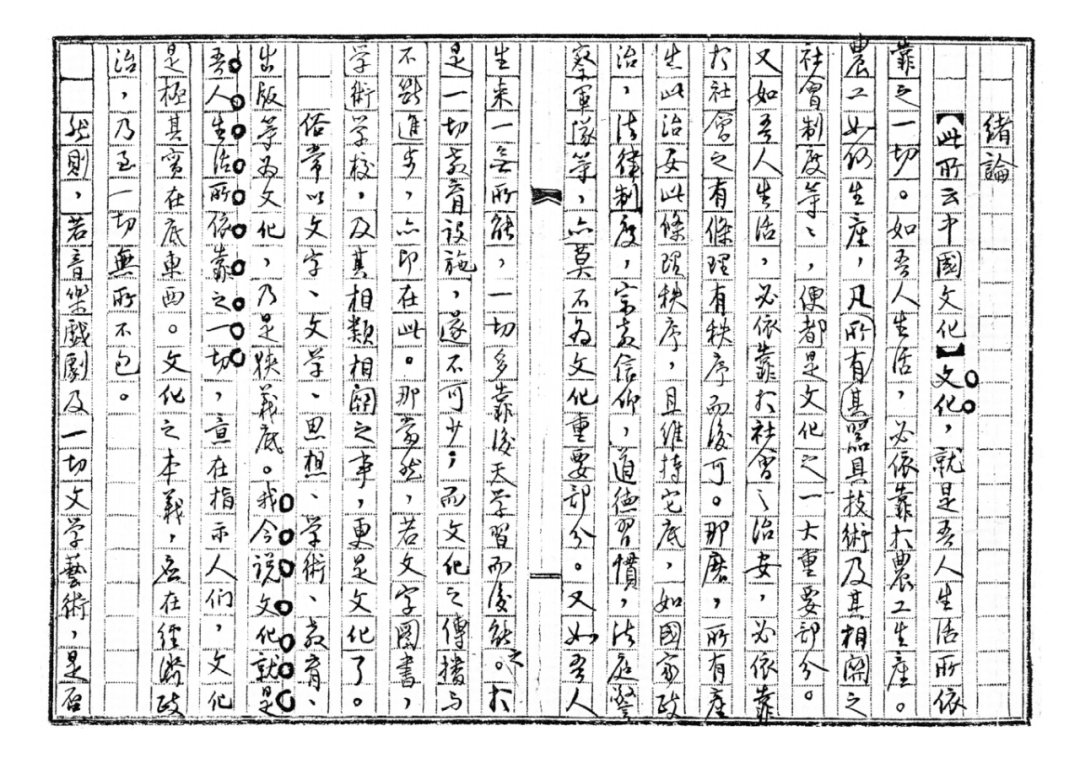 緒論
【此所云中國文化】文化，就是吾人生活所依
靠之一切。如吾人生活，必依靠於農工生產。
農工如何生產，凡所有其器具技術及其相關之
社會制度等等，便都是文化之一大重要部分。
又如吾人生活，必依靠於社會之治安，必依靠
於社會之有條理有秩序而後可。那麽，所有產
生此治安此條理秩序，且維持它底，如國家政
治，法律制度，宗教信仰，道德習慣，法庭警
察軍隊等，亦莫不為文化重要部分。又如吾人
生來一無所能，一切多靠後天學習而後能之。於
是一切教育設施，遂不可少；而文化之傳播与
不斷進步，亦即在此。那當然，若文字圖書，
学術学校，及其相類相關之事，更是文化了。
俗常以文字、文学、思想、学術、教育、
出版等為文化，乃是狹義底。我今说文化就是
吾人生活所依靠之一切，意在指示人们，文化
是極其實在底東西。文化之本義，应在經濟政
治，乃至一切無所不包。
然則，若音樂戲劇及一切文学藝術，是否